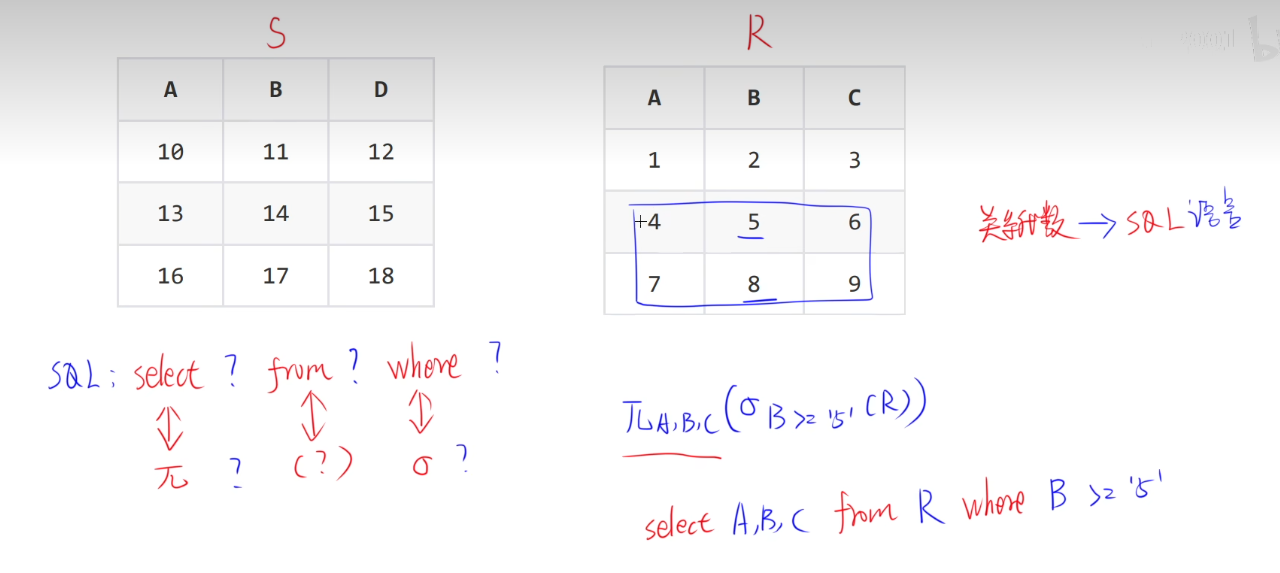 S
A B D
10 11 12
13 14 15
16 17 18
R
A B C
1 2 3
4 5 6
7 8 9
关系代数 → SQL 语言
SQL: select ? from ? where ?
π ? (?) σ ?
π A,B,C (σ B >= '5' (R))
select A,B,C from R where B >= '5'